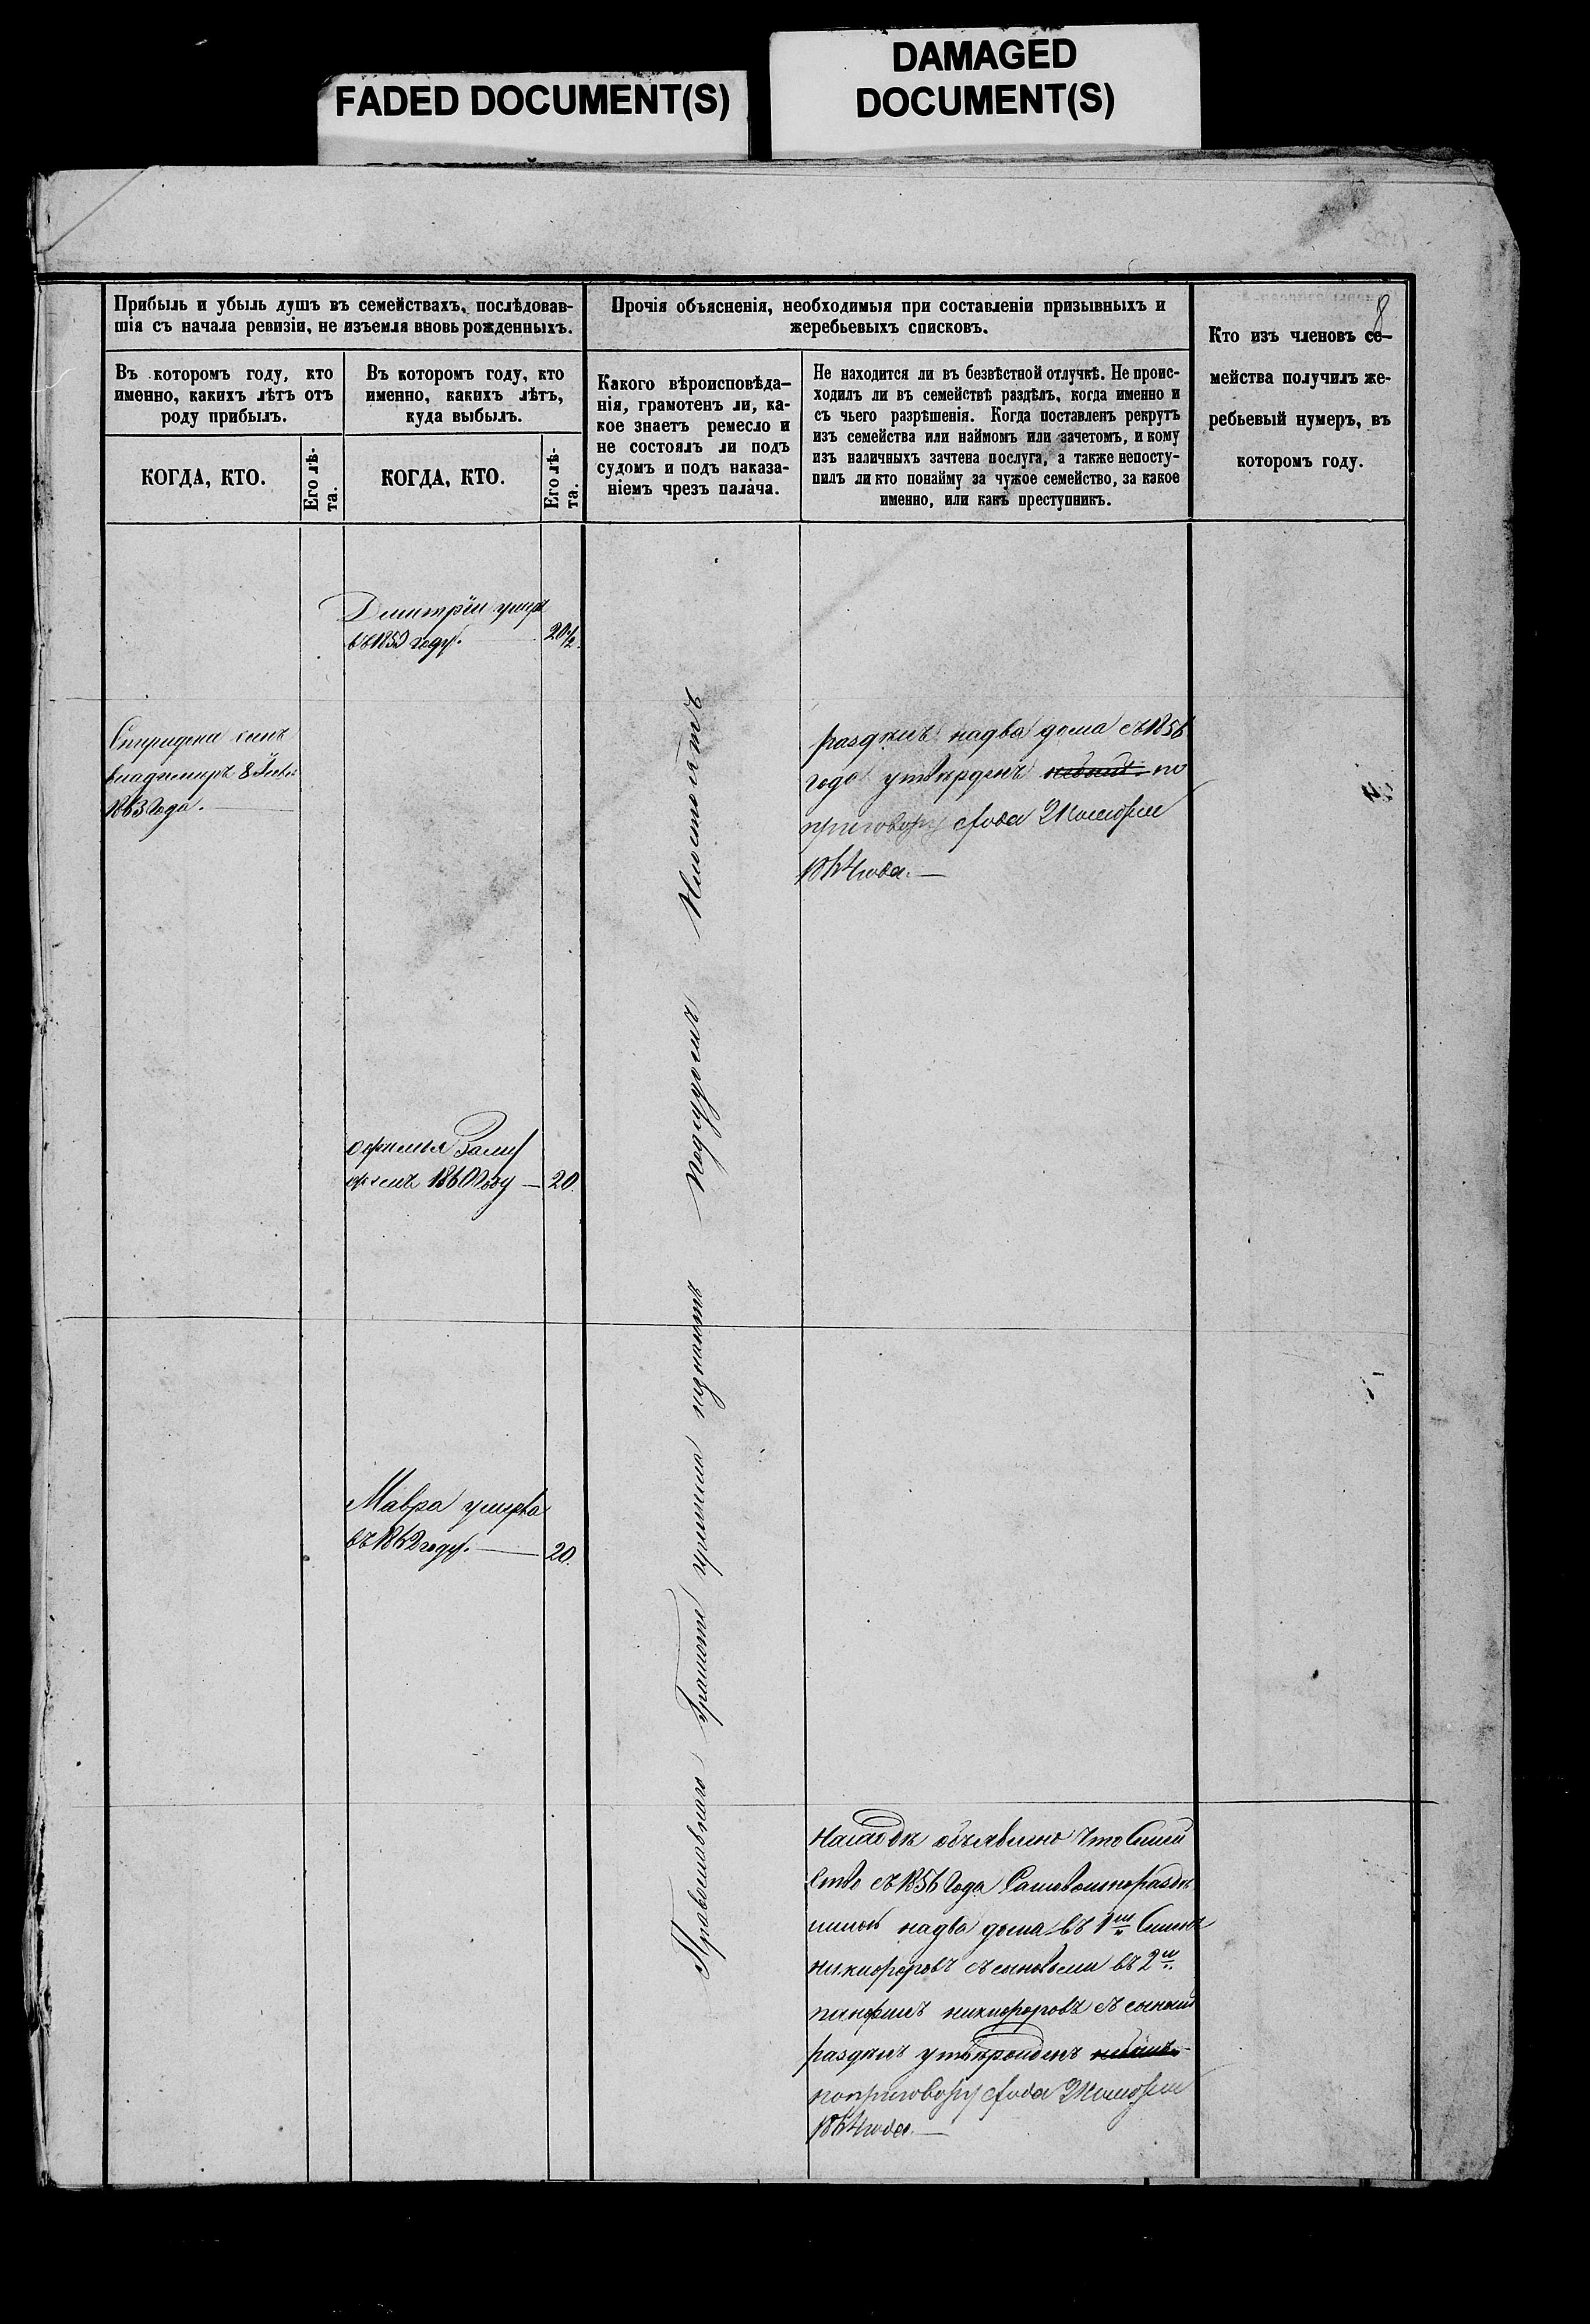 FADED DOCUMENT(S)
DAMAGED
DOCUMENT(S)
8
Прибыль и убыль душъ въ семействахъ, послѣдовав-
шія съ начала ревизіи, не изъемля вновь рожденныхъ.
Прочія объясненія, необходимыя при составленіи призывныхъ и
жеребьевыхъ списковъ.
Кто изъ членовъ се-
мейства получилъ же-
ребьевый нумеръ, въ
которомъ году.
Въ которомъ году, кто
именно, какихъ лѣтъ отъ
роду прибылъ.
Въ которомъ году, кто
именно, какихъ лѣтъ,
куда выбылъ.
Какого вѣроисповѣда-
нія, грамотенъ ли, ка-
кое знаетъ ремесло и
не состоялъ ли подъ
судомъ и подъ наказа-
ніемъ чрезъ палача.
Не находится ли въ безвѣстной отлучкѣ. Не проис-
ходилъ ли въ семействѣ раздѣлъ, когда именно и
съ чьего разрѣшенія. Когда поставленъ рекрутъ
изъ семейства или наймомъ или зачетомъ, и кому
изъ наличныхъ зачтена послуга, а также непосту-
пилъ ли кто понайму за чужое семейство, за какое
именно, или какъ преступникъ.
КОГДА, КТО.
Его лѣ-
та.
КОГДА, КТО.
Его лѣ-
та.
Дмитрій умеръ
въ 1859 году. 20 1/2.
Спиридона сынъ
владимиръ 8
1863 года.
раздѣлъ надва дома съ 1856
года утвержденъ по
приговору
1864 года.
20.
1860 году
Мавра умерла
въ 1862 году. 20.
Православнаго Грамоте незнаютъ Подсудомъ Несостоятъ
объявлено что Семей
ство съ 1856 года Самовольно раздѣ
надва дома въ 1 м
никифоровъ съ сыновьями въ 2 м
панфилъ никифоровъ съ сыномъ
раздѣлъ утвержденъ
поприговору
1864 года.